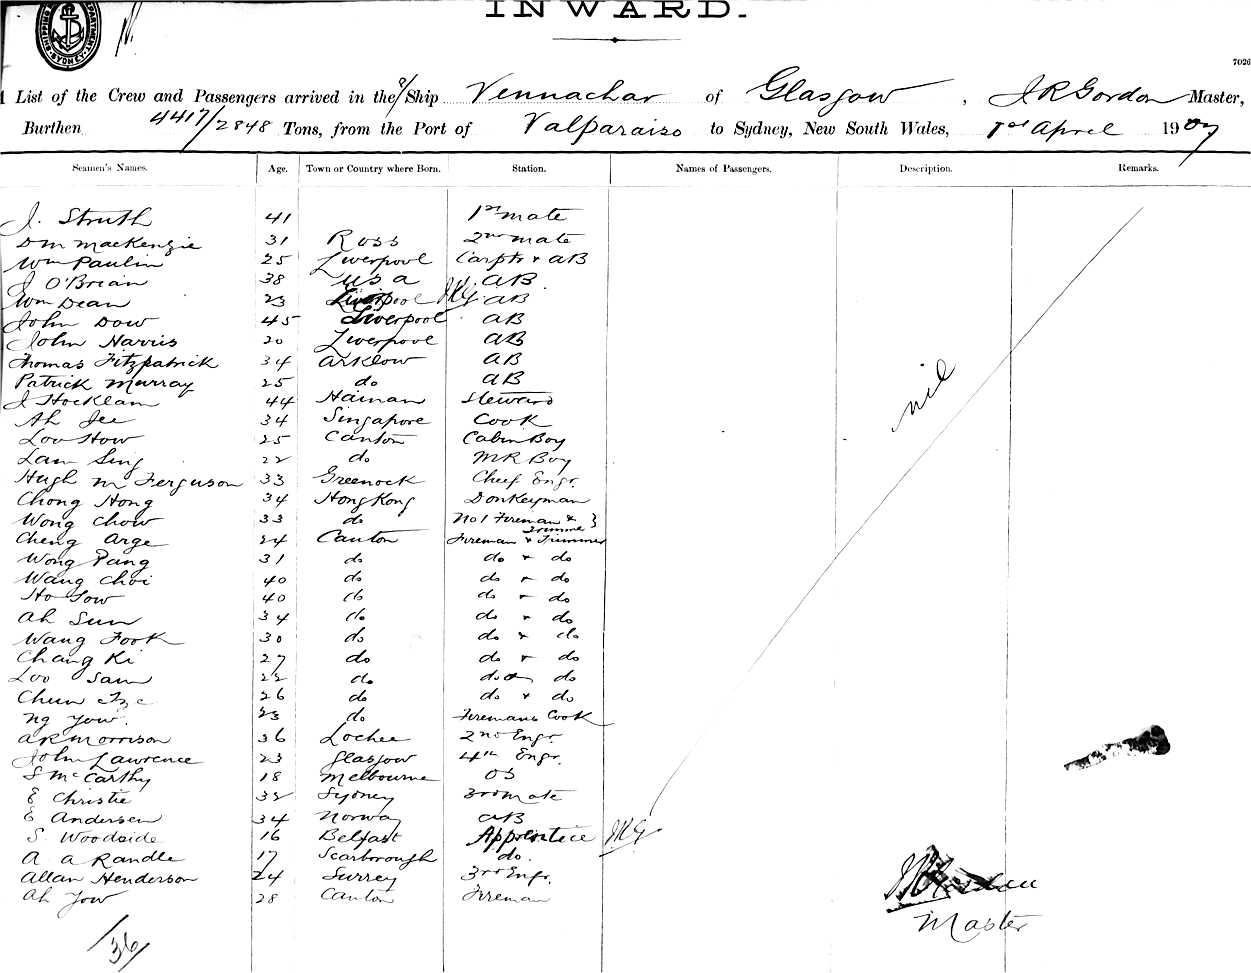 INWARD.
SHIPPING DEPARTMENT SYDNEY
7026
List of the Crew and Passengers arrived in the S/Ship Vennachar of Glasgow, J R Gordon Master,
Burthen 4417/2848 Tons, from the Port of Valparaiso to Sydney, New South Wales, 1st April 1907
Seamen's Names. Age. Town or Country where Born. Station. Names of Passengers. Description. Remarks.
J. Struth 41 1st mate
D M MacKenzie 31 Ross 2nd mate
Wm Paulin 25 Liverpool Carptr & AB
J O'Brian 38 USA AB
Wm Dean 23 Liverpool JRG AB
John Dow 45 Liverpool AB
John Harris 20 Liverpool AB
Thomas Fitzpatrick 34 Arklow AB
Patrick Murray 25 do AB
J Hocklam 44 Hainan Steward
Ah Jee 34 Singapore Cook
Loo How 25 Canton Cabin Boy
Lam Sing 22 do MR Boy
Hugh M Ferguson 33 Greenock Cheef Engr.
Chong Hong 34 Hong Kong Donkeyman
Wong Chow 33 do No 1 Fireman & Trimmer
Cheng Arge 24 Canton Fireman & Trimmer
Wong Pang 31 do do & do
Wang Choi 40 do do & do
Ho Sow 40 do do & do
Ah Sun 34 do do & do
Wang Fook 30 do do & do
Chang Ki 27 do do & do
Loo Sam 22 do do & do
Chun 26 do do & do
Ng Yow. 23 do Firemans Cook
A R Morrison 36 Lochee 2nd Engr.
John Lawrence 23 Glasgow 4th Engr.
S McCarthy 18 Melbourne OS
E Christie 32 Sydney 3rd mate
E Andersen 34 Norway AB
S. Woodside 16 Belfast Apprentice JRG
A A Randle 17 Scarborough do.
Allan Henderson 24 Surrey 3rd Engr.
Ah Yow 28 Canton Fireman
nil
J R Gordon
Master
36